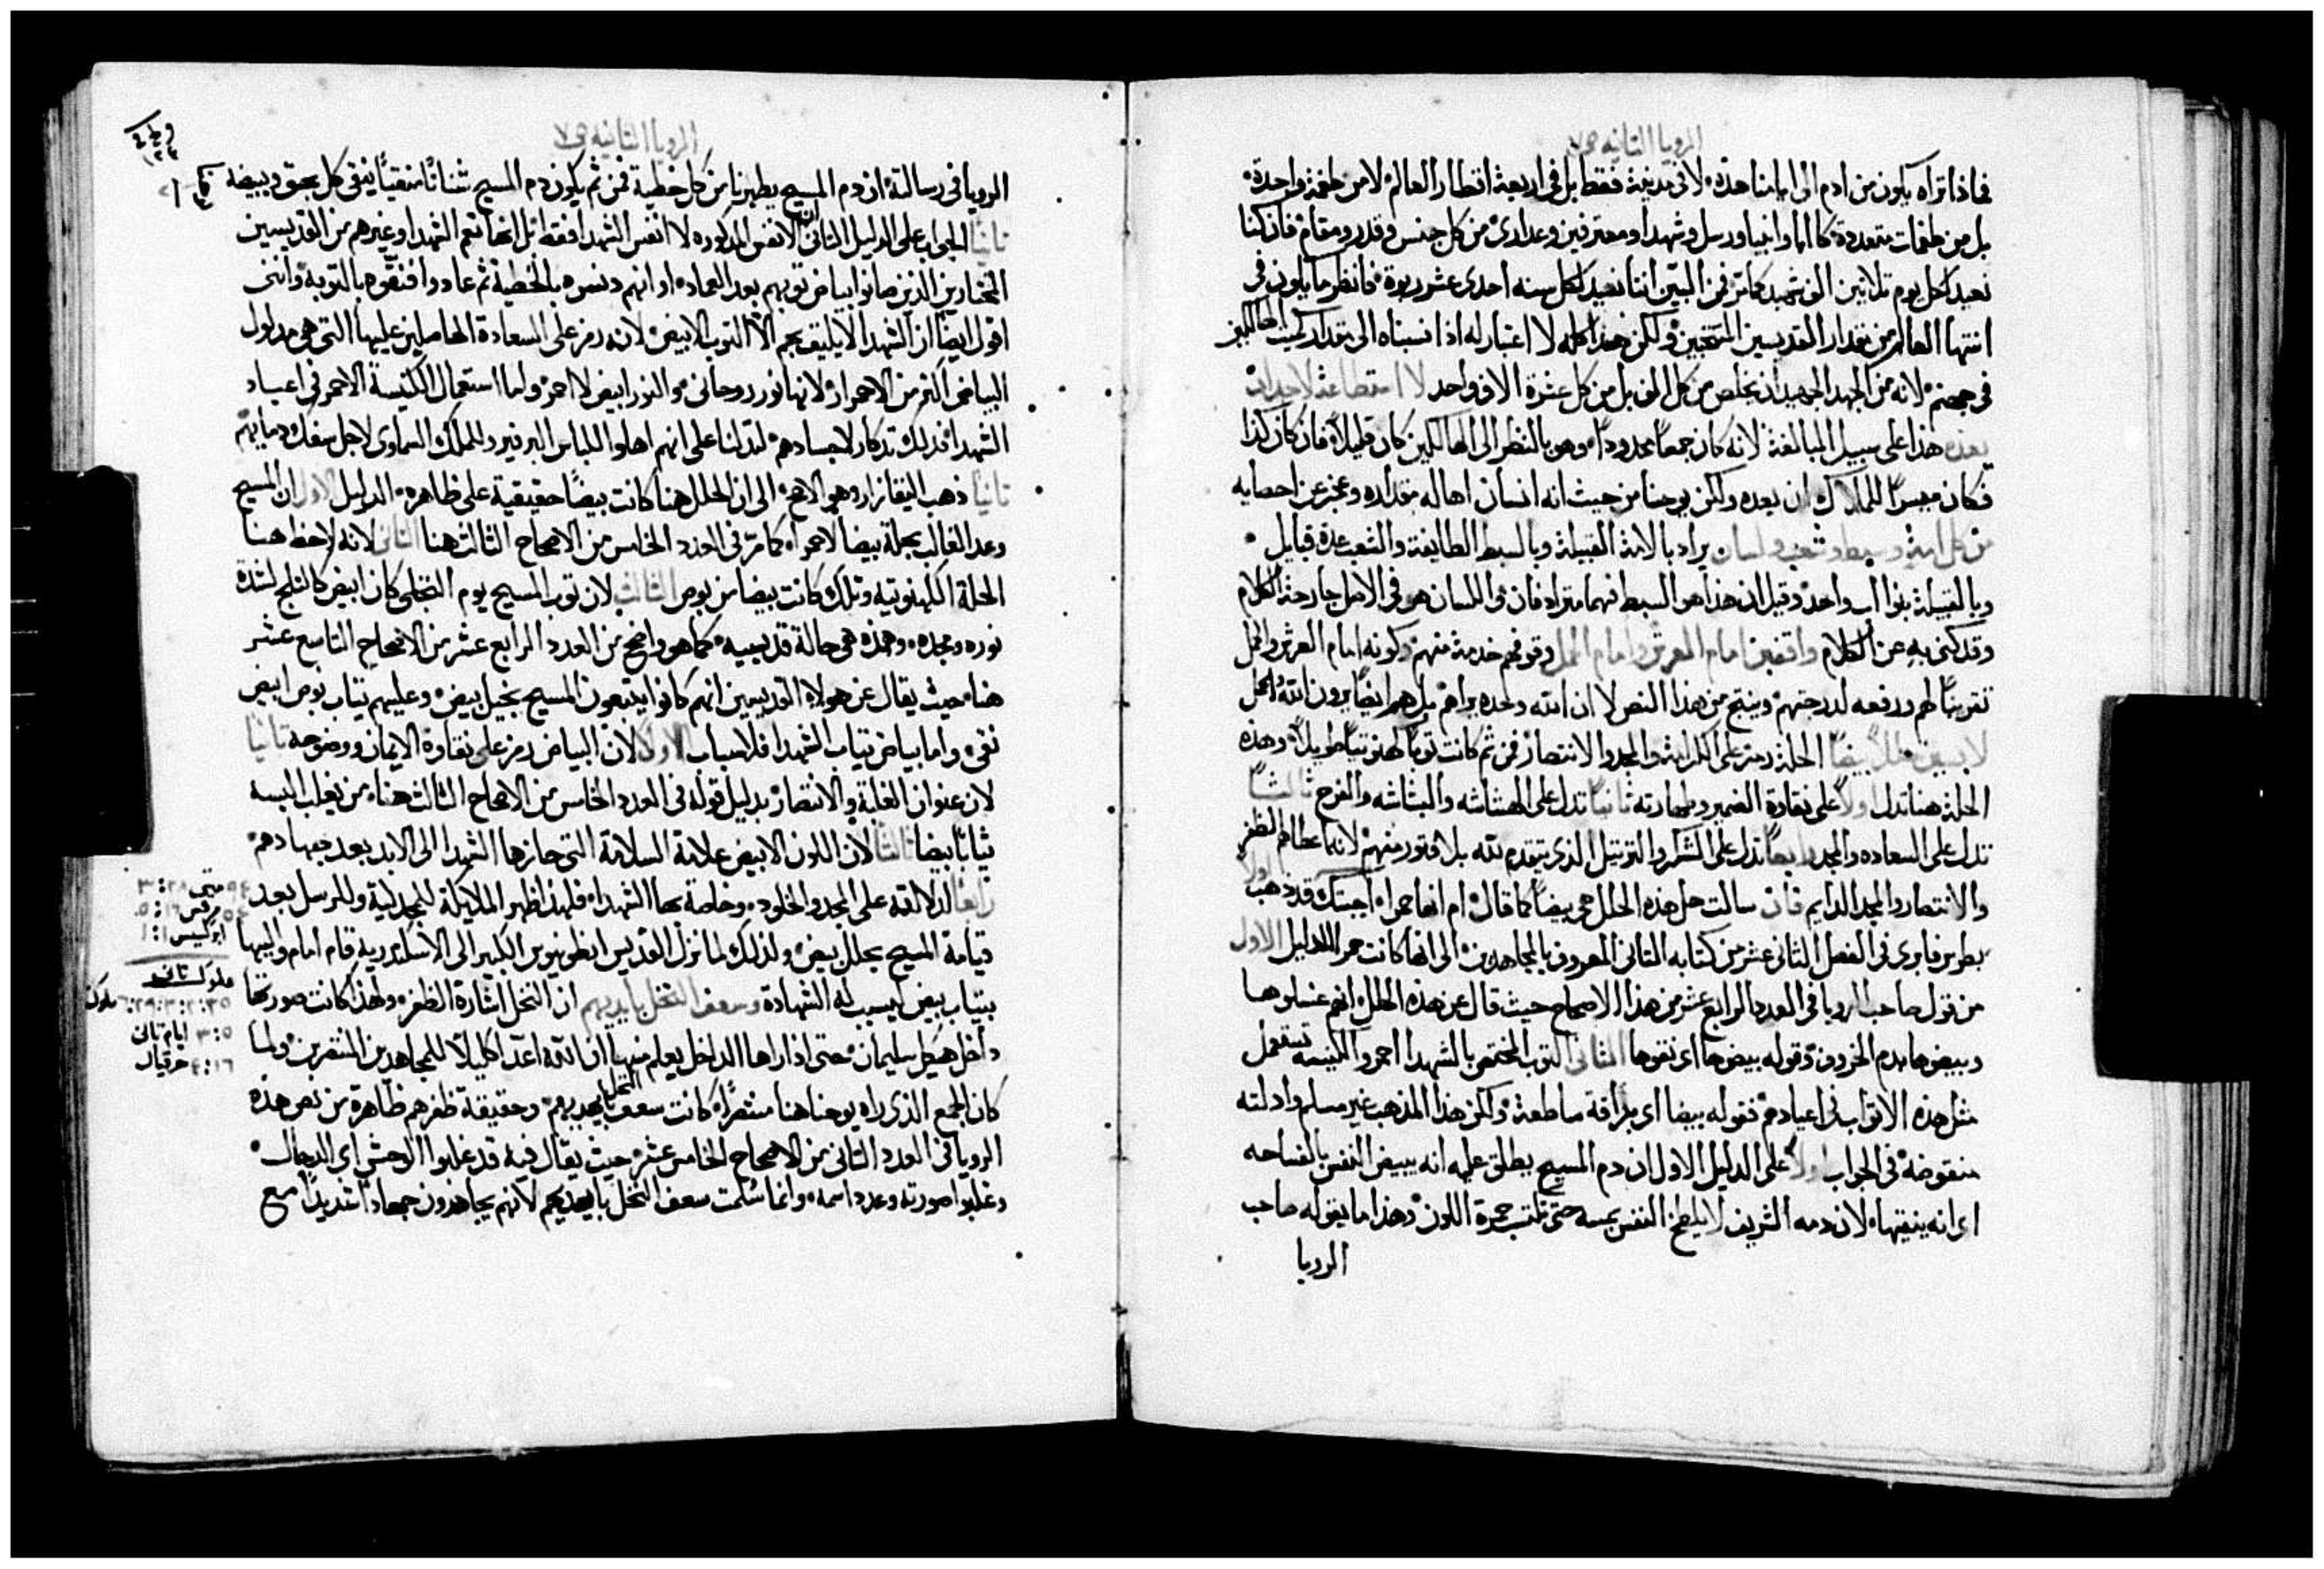 الرويا الثانيه ص٧
فماذا تراه يكون من ادم الى ايامنا هذه لا في مدينة فقط بل في اربعة اقطار العالم لا من طغمة واحدة
بل من طغمات متعددة كالابا وانبيا ورسل وشهدا ومعترفين وعدارى من كل جنس وقدر ومقام فان كنا
نعيد لكل يوم تلاتين الف شهيد كما مر فمن البين اننا نعيد لكل سنه احدى عشر ربوة فانظر ما يكون في
انتها العالم من مقدار القديسين المنتخبين ولكن هذا كله لا اعتبار له اذا نسبناه الى مقدار الهالكين
في جهنم لانه من الجهد الجهيد ان يخلص من كل الف بل من كل عشرة الاف واحد لا استطاعة لاحد ان
يعده هذا على سبيل المبالغة لانه كان جمعا محدودا وهو بالنظر الى الهالكين كان قليلا فان كان كذا
فكان ميسرا للملاك ان يعده ولكن يوحنا من حيث انه انسان اهاله مقداره وعجز عن احصايه
من كل امة وسبط وشعب ولسان يراد بالامة القبيلة وبالسبط الطايفة والشعب عدة قبايل
وبالقبيلة بنوا اب واحد وقيل ان هذا هو السبط فهما مترادفان واللسان هو في الاصل جارحة الكلام
وقد كنى به عن الكلام واقفين امام العرش وامام الحمل وقوفهم خدمة منهم وكونه امام العرش والحمل
تقريبا لهم ورفعه لدرجتهم وينتج من هذا النص لا ان الله وحده يراهم بل هم ايضا يرون الله والحمل
لابسين حللا بيضا الحلة رمز على الكرامة والمجد والانتصار فمن ثم كانت ثوبا كهنوتيا طويلا وهذه
الحلة هنا تدل اولا على نقاوة الضمير وطهارته ثانيا تدل على الهشاشه والبشاشه والفرح ثالثا
تدل على السعاده والمجد رابعا تدل على الشكر والترتيل الذي يتقدم لله بلا فتور منهم لانه اعطاهم الظفر
والانتصار والمجد الدايم فان سالت هل هذه الحلل هي بيضا كما قال ام انها حمرا اجبتك قد ذهب اولا
بطرس فايري في الفصل الثاني عشر من كتابه الثاني المعروف بالمجاهدين الى انها كانت حمرا الدليل الاول
من قول صاحب الرويا في العدد الرابع عشر من هذا الاصحاح حيث قال عن هذه الحلل انهم غسلوها
وبيضوها بدم الخروف وقوله بيضوها اي نقوها الثاني الثوب المختص بالشهدا احمر والكنيسه تستعمل
مثل هذه الاثواب في اعيادهم فقوله بيضا اي براقة ساطعة ولكن هذا المذهب غير مسلم وادلته
منقوضة في الجواب اولا على الدليل الاول ان دم المسيح يطلق عليه انه يبيض النفس بالفساحه
اي انه ينقيها لان دمه الشريف لا يلطخ النفس بمسه حتى تكتسب حمرة اللون وهذا ما يقوله صاحب
الرويا
الرويا الثانيه ص٧
الرويا في رسالته ان دم المسيح يطهرنا من كل خطية فمن ثم يكون دم المسيح شنانا منقيا ينقي كل بهق ويبيضه
ثانيا الجواب على الدليل الثاني ان الانفس المذكوره لا انفس الشهدا فقط بل انها تعم الشهدا وغيرهم من القديسين
المختارين الذين صانوا بياض ثوبهم بعد العماد او انهم دنسوه بالخطية ثم عادوا فنقوه بالتوبة وانني
اقول ايضا ان الشهدا لا يليق بهم الا الثوب الابيض لانه رمز على السعادة الحاصلين عليها التي هي مدلول
البياض اكثر من الاحمرار لانها نور روحاني والنور ابيض لا احمر واما استعمال الكنيسة الاحمر في اعياد
الشهدا فذلك تذكار لاجسادهم لتدلنا على انهم اهلوا اللباس البرفير والملك السماوي لاجل سفك دمايهم
ثانيا ذهب اليقازار وهو الاصح الى ان الحلل هنا كانت بيضا حقيقية على ظاهره الدليل الاول ان المسيح
وعد الغالب بحلة بيضا لا حمرا كما مر في العدد الخامس من الاصحاح الثالث هنا الثاني لانه لاحظ هنا
الحلة الكهنوتيه وتلك كانت بيضا من بوص الثالث لان ثوب المسيح يوم التجلي كان ابيض كالثلج لشدة
نوره ومجده وهذه هي حالة قديسيه كما هو واضح من العدد الرابع عشر من الاصحاح التاسع عشر
هنا حيث يقال عن هولاء القديسين انهم كانوا يتبعون المسيح بخيل بيض وعليهم ثياب بوص ابيض
نقي واما بياض ثياب الشهدا فلاسباب الاول لان البياض رمز على نقاوة الايمان ووضوحه ثانيا
لان عنوان الغلبة والانتصار بدليل قوله في العدد الخامس من الاصحاح الثالث هنا من يغلب البسه
ثيابا بيضا ثالثا لان اللون الابيض علامة السلامة التي حازها الشهدا الى الابد بعد جهادهم
رابعا لدلالته على المجد والخلود وخاصة بها الشهدا فلهذا ظهر الملايكة للمجدلية وللرسل بعد
قيامة المسيح بحلل بيض ولذلك لما نزل القديس انطونيوس الكبير الى الاسكندرية قام امام واليها
بثياب بيض ليسبب له الشهادة وسعف النخل بايديهم ان النخل اشارة الظفر ولهذا كانت صورتها
داخل هيكل سليمان حتى اذا راها الداخل يعلم منها ان الله اعد اكليلا للمجاهدين المنتصرين ولما
كان الجمع الذي راه يوحنا هنا منتصرا كانت سعف النخل بايديهم وحقيقة ظفرهم ظاهرة من نص هذه
الرويا في العدد الثاني من الاصحاح الخامس عشر حيث يقال فيه قد غلبوا الوحش اي الدجال
وغلبوا صورته وعدد اسمه وانما سلمت سعف النخل بايديهم لانهم يجاهدون جهادا شديدا مع
متى ٢٨: ٣
مرقس ١٦: ٥
ابركسيس ١: ١
ملوك ثالث
٦: ٢٩: ٣٢: ٣٥ ملوك
٣: ٥ ايام ثاني
٤: ١٦ حزقيال